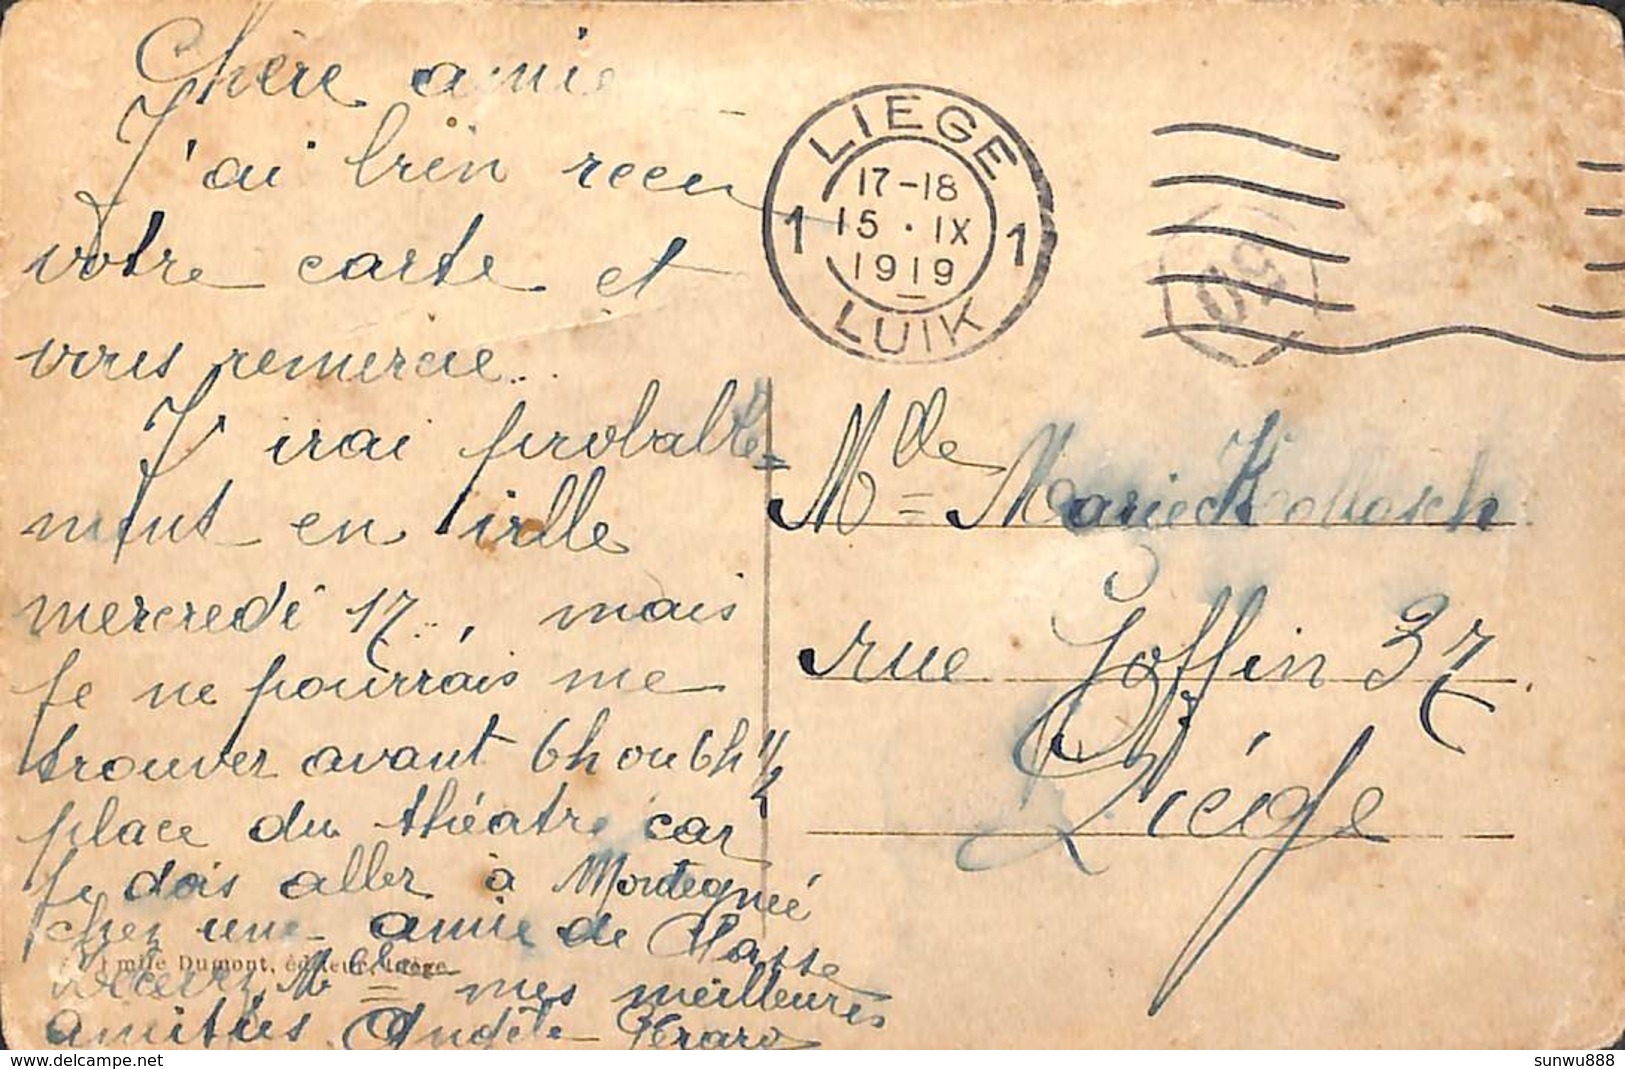 Chère amie
J'ai bien recu
votre carte et
vous remercie.
J'irai probable=
ment en ville
mercredi 17, mais
je ne pourrais me
trouver avant 6h ou 6h 1/2
place du théatre car
je dois aller à Montegnée
chez une amie de Classe
Recevez Mlle mes meilleures
amitiés. Angèle Gerard
Emile Dumont, éditeur, Liège
LIEGE
17-18
1 15 . IX 1
1919
LUIK
Mlle Marie
rue Goffin 37
Liége
sunwu888